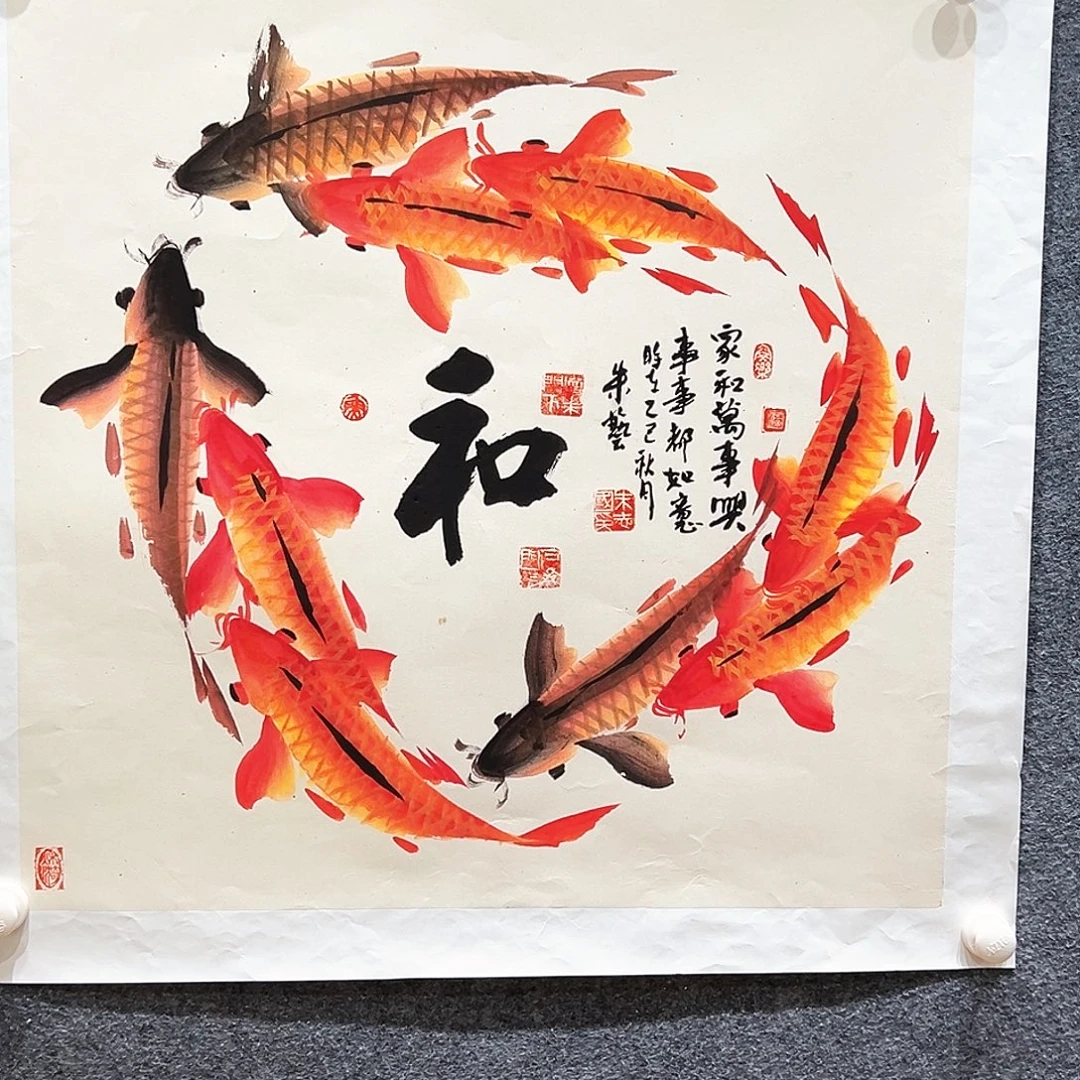 和
家和萬事興
事事都如意
时在乙巳秋月
朱藝